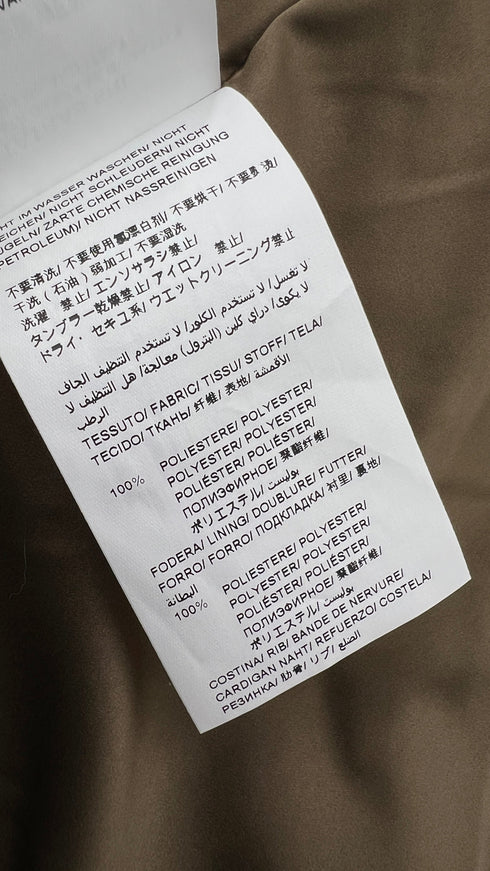 HT IM WASSER WASCHEN/ NICHT
EICHEN/ NICHT SCHLEUDERN/ NICHT
ÜGELN/ ZARTE CHEMISCHE REINIGUNG
PETROLEUM)/ NICHT NASSREINIGEN
不要清洗/ 不要使用氯漂白剂/ 不要烘干/ 不要熨 烫/
干洗 ( 石油 ) 弱加工/ 不要湿洗
洗濯 禁止/ エンソサラシ禁止/
タンブラー乾燥禁止/ アイロン 禁止/
ドライ・セキユ系/ ウエットクリーニング禁止
لا تغسل/ لا تستخدم الكلور/ لا تستخدم التنظيف الجاف
لا يكوى/ دراي كلين (البترول) معالجة/ هل التنظيف لا
الرطب
TESSUTO/ FABRIC/ TISSU/ STOFF/ TELA/
TECIDO/ ТКАНЬ/ 纤维/ 表地/ الأقمشة/
100% POLIESTERE/ POLYESTER/
POLYESTER/ POLYESTER/
POLIÉSTER/ POLIÉSTER/
ПОЛИЭФИРНОЕ/ 聚酯纤维/
ポリエステル/ بوليست/
FODERA/ LINING/ DOUBLURE/ FUTTER/
FORRO/ FORRO/ ПОДКЛАДКА/ 衬里/ 裏地/
البطانة
100% POLIESTERE/ POLYESTER/
POLYESTER/ POLYESTER/
POLIÉSTER/ POLIÉSTER/
ПОЛИЭФИРНОЕ/ 聚酯纤维/
ポリエステル/ بوليست/
COSTINA/ RIB/ BANDE DE NERVURE/
CARDIGAN NAHT/ REFUERZO/ COSTELA/
РЕЗИНКА/ 肋骨/ リブ/ الضلع/